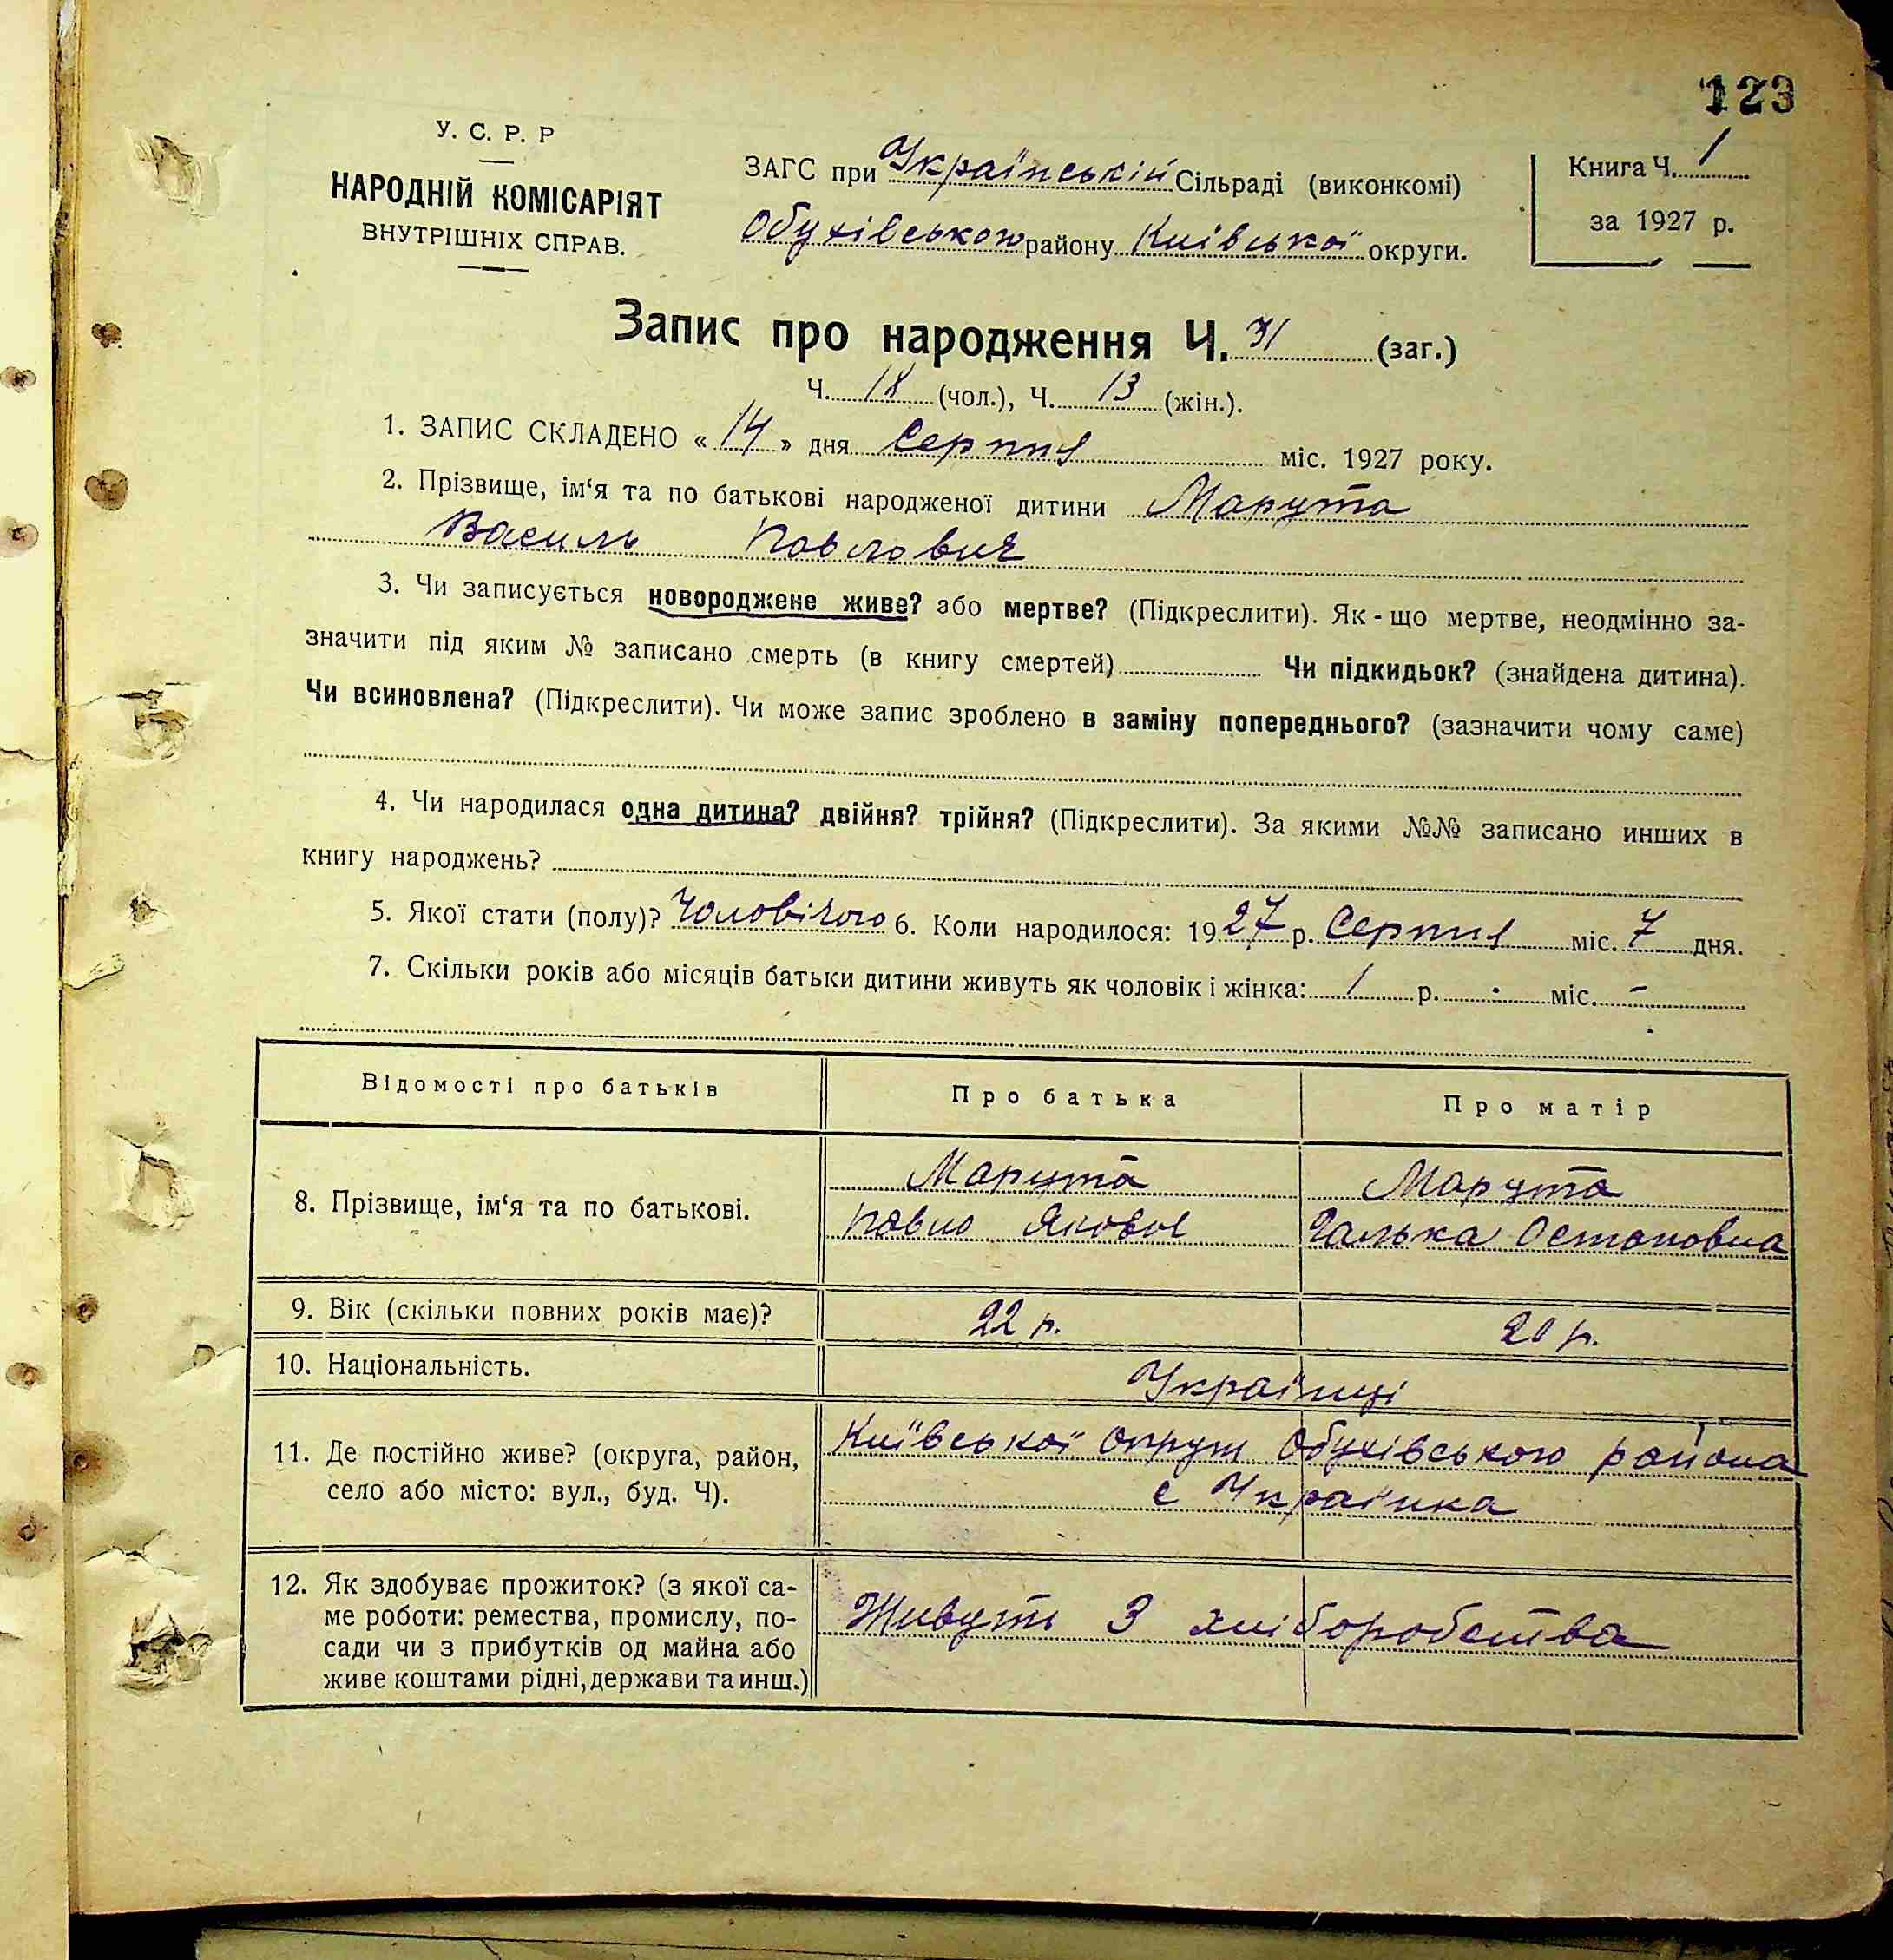 123
У. С. Р. Р
НАРОДНІЙ КОМІСАРІЯТ
ВНУТРІШНІХ СПРАВ.
ЗАГС при Українській Сільраді (виконкомі)
Обухівського району Київської округи.
Книга Ч. 1
за 1927 р.
Запис про народження Ч. 31 (заг.)
Ч. 18 (чол.), Ч. 13 (жін.).
1. ЗАПИС СКЛАДЕНО « 14 » дня Серпня міс. 1927 року.
2. Прізвище, ім'я та по батькові народженої дитини Марута
Василь Павлович
3. Чи записується новороджене живе? або мертве? (Підкреслити). Як-що мертве, неодмінно за-
значити під яким № записано смерть (в книгу смертей) Чи підкидьок? (знайдена дитина).
Чи всиновлена? (Підкреслити). Чи може запис зроблено в заміну попереднього? (зазначити чому саме)
4. Чи народилася одна дитина? двійня? трійня? (Підкреслити). За якими №№ записано инших в
книгу народжень?
5. Якої стати (полу)? Чоловічого 6. Коли народилося: 1927 р. Серпня міс. 7 дня.
7. Скільки років або місяців батьки дитини живуть як чоловік і жінка: 1 р. - міс. -
Відомості про батьків Про батька Про матір
8. Прізвище, ім'я та по батькові.
Марута Марута
Павло Якович Галька Остаповна
9. Вік (скільки повних років має)? 22 р. 20 р.
10. Національність. Українці
11. Де постійно живе? (округа, район,
село або місто: вул., буд. Ч).
Київської округи Обухівського района
с Українка
12. Як здобуває прожиток? (з якої са-
ме роботи: ремества, промислу, по-
сади чи з прибутків од майна або
живе коштами рідні, держави та инш.)
Живуть З хліборобства